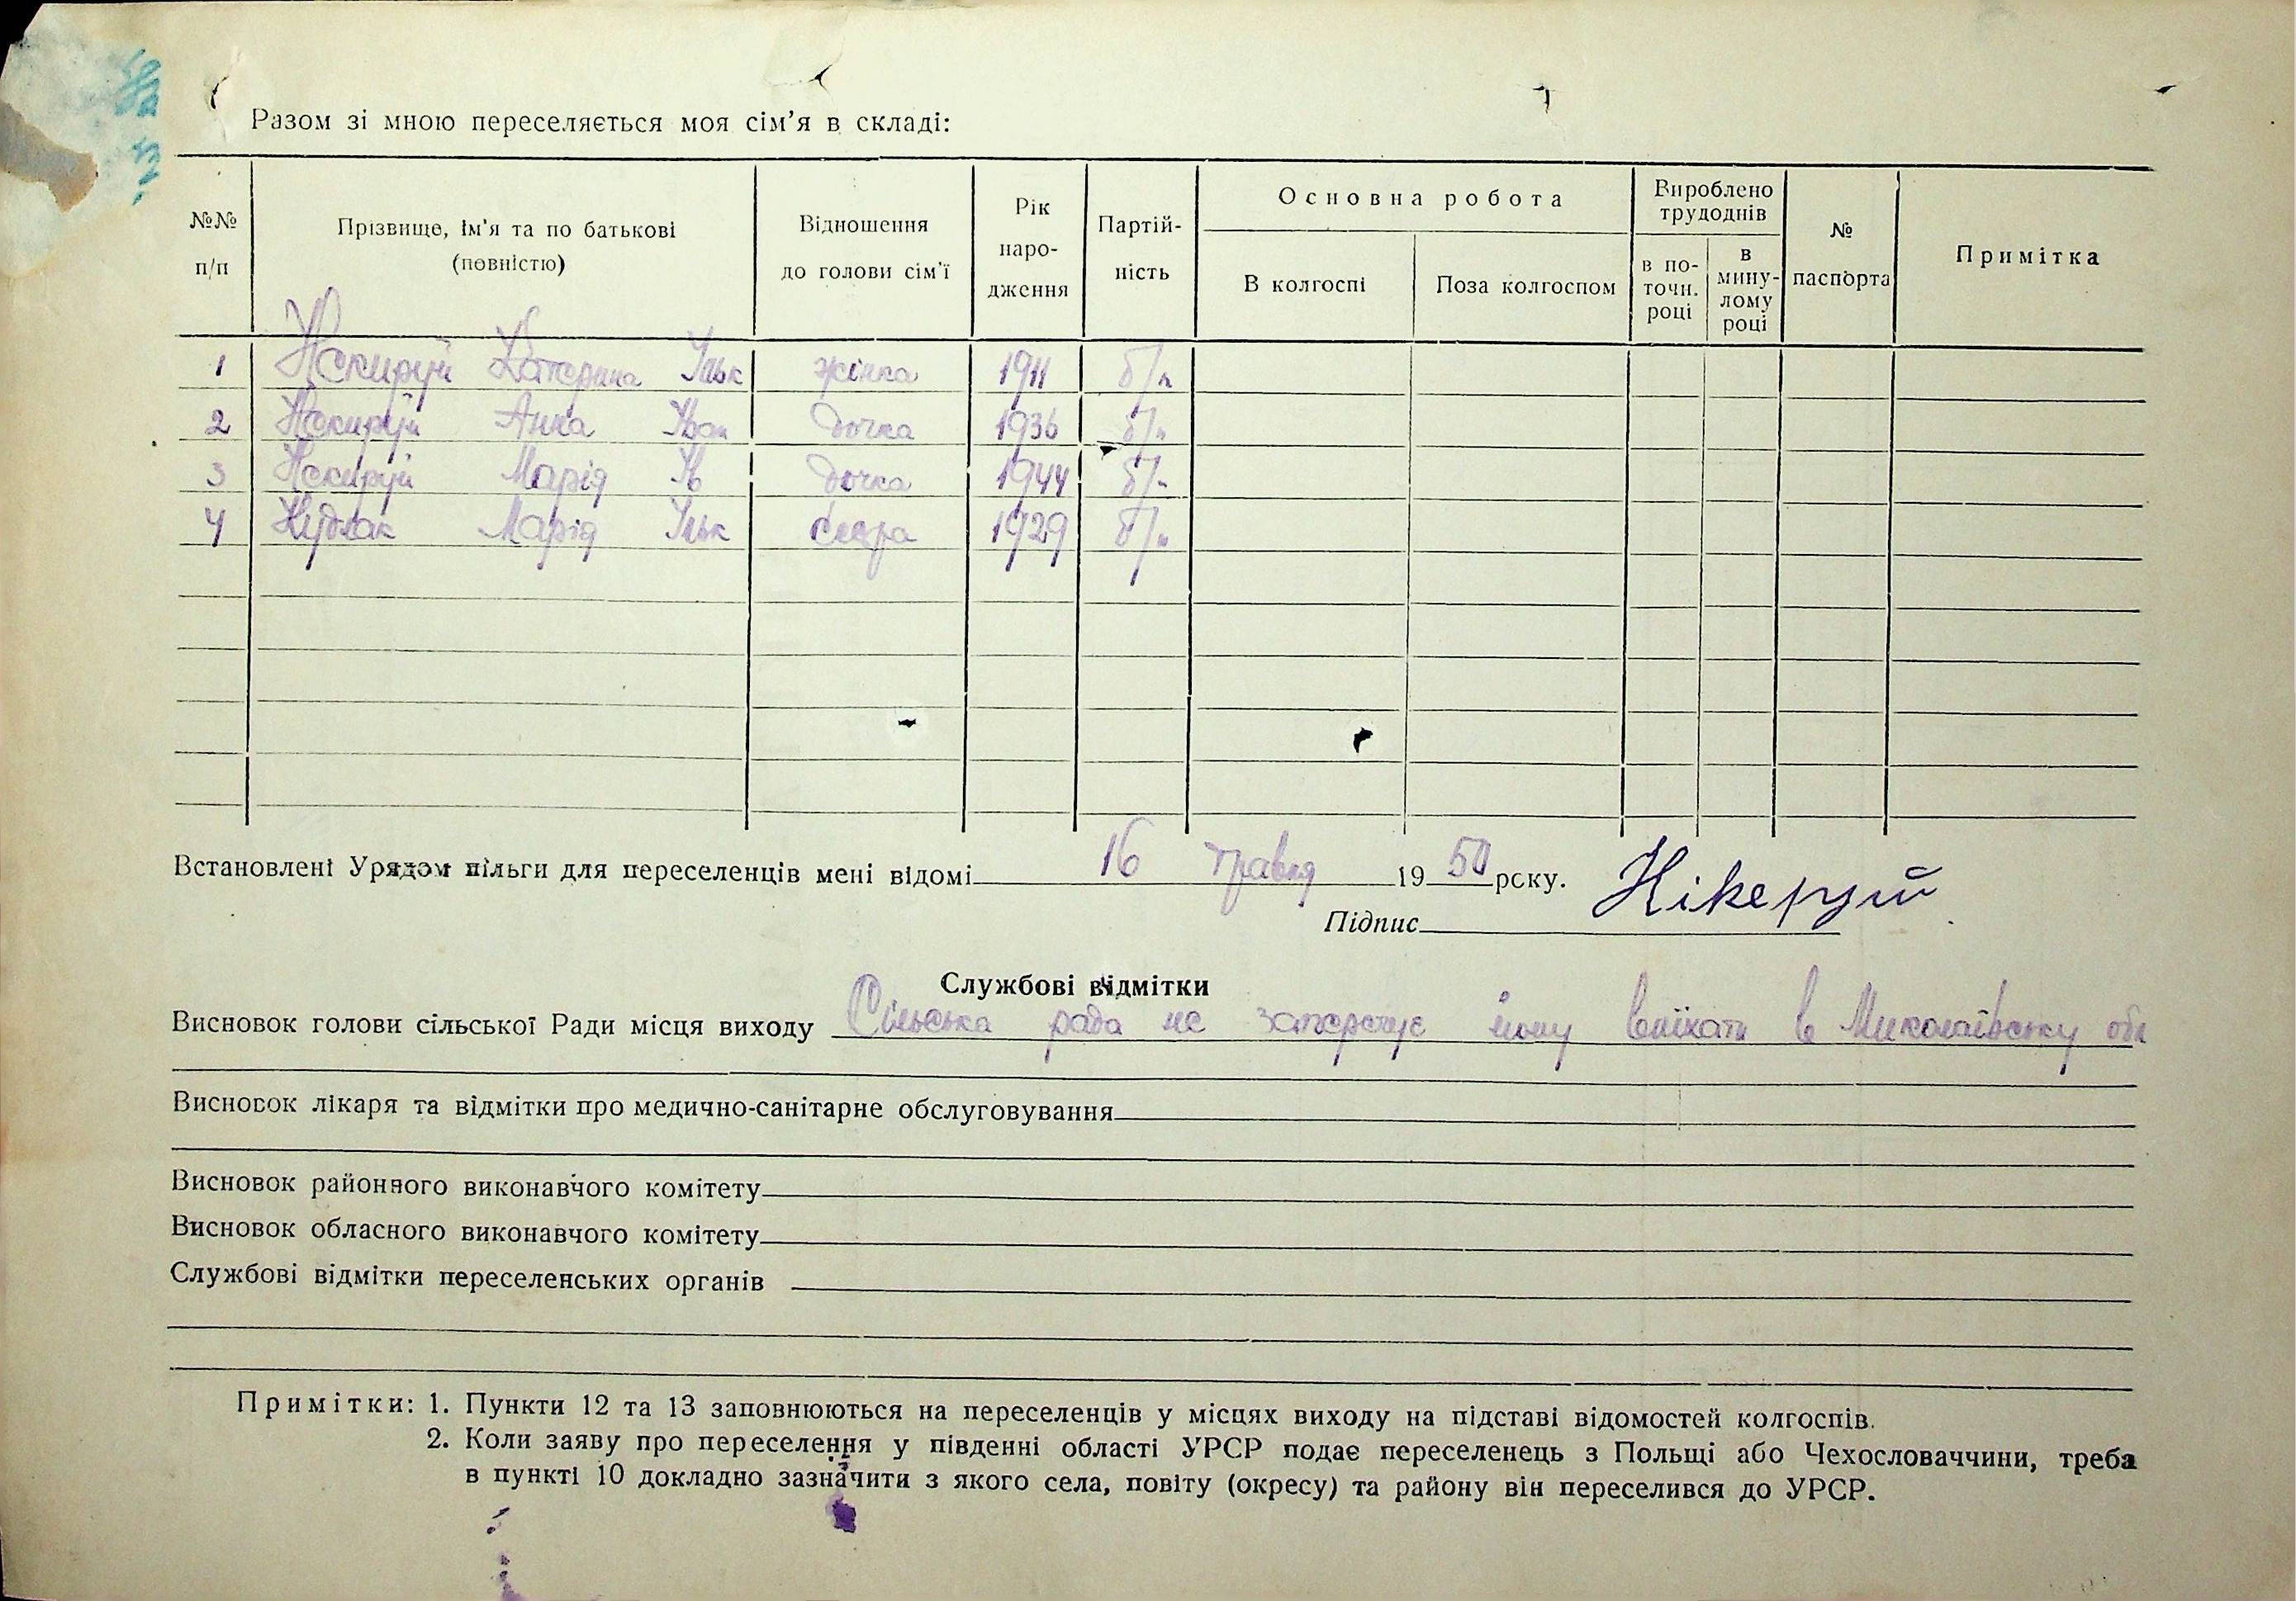 Разом зі мною переселяється моя сім'я в складі:
№№ п/п Прізвище, ім'я та по батькові (повністю) Відношення до голови сім'ї Рік народження Партійність Основна робота В колгоспі Поза колгоспом Вироблено трудоднів в поточн. році в минулому році № паспорта Примітка
1 Катерина Ільк жінка 1911 б/п
2 Анна Іван дочка 1936 б/п
3 Марія Ів дочка 1944 б/п
4 Марія Ільк сестра 1929 б/п
Встановлені Урядом пільги для переселенців мені відомі 16 травня 1950 року.
Підпис Нікеруй
Службові відмітки
Висновок голови сільської Ради місця виходу Сільська рада не заперечує йому виїхати в Миколаївську обл
Висновок лікаря та відмітки про медично-санітарне обслуговування
Висновок районного виконавчого комітету
Висновок обласного виконавчого комітету
Службові відмітки переселенських органів
Примітки: 1. Пункти 12 та 13 заповнюються на переселенців у місцях виходу на підставі відомостей колгоспів.
2. Коли заяву про переселення у південні області УРСР подає переселенець з Польщі або Чехословаччини, треба
в пункті 10 докладно зазначити з якого села, повіту (окресу) та району він переселився до УРСР.